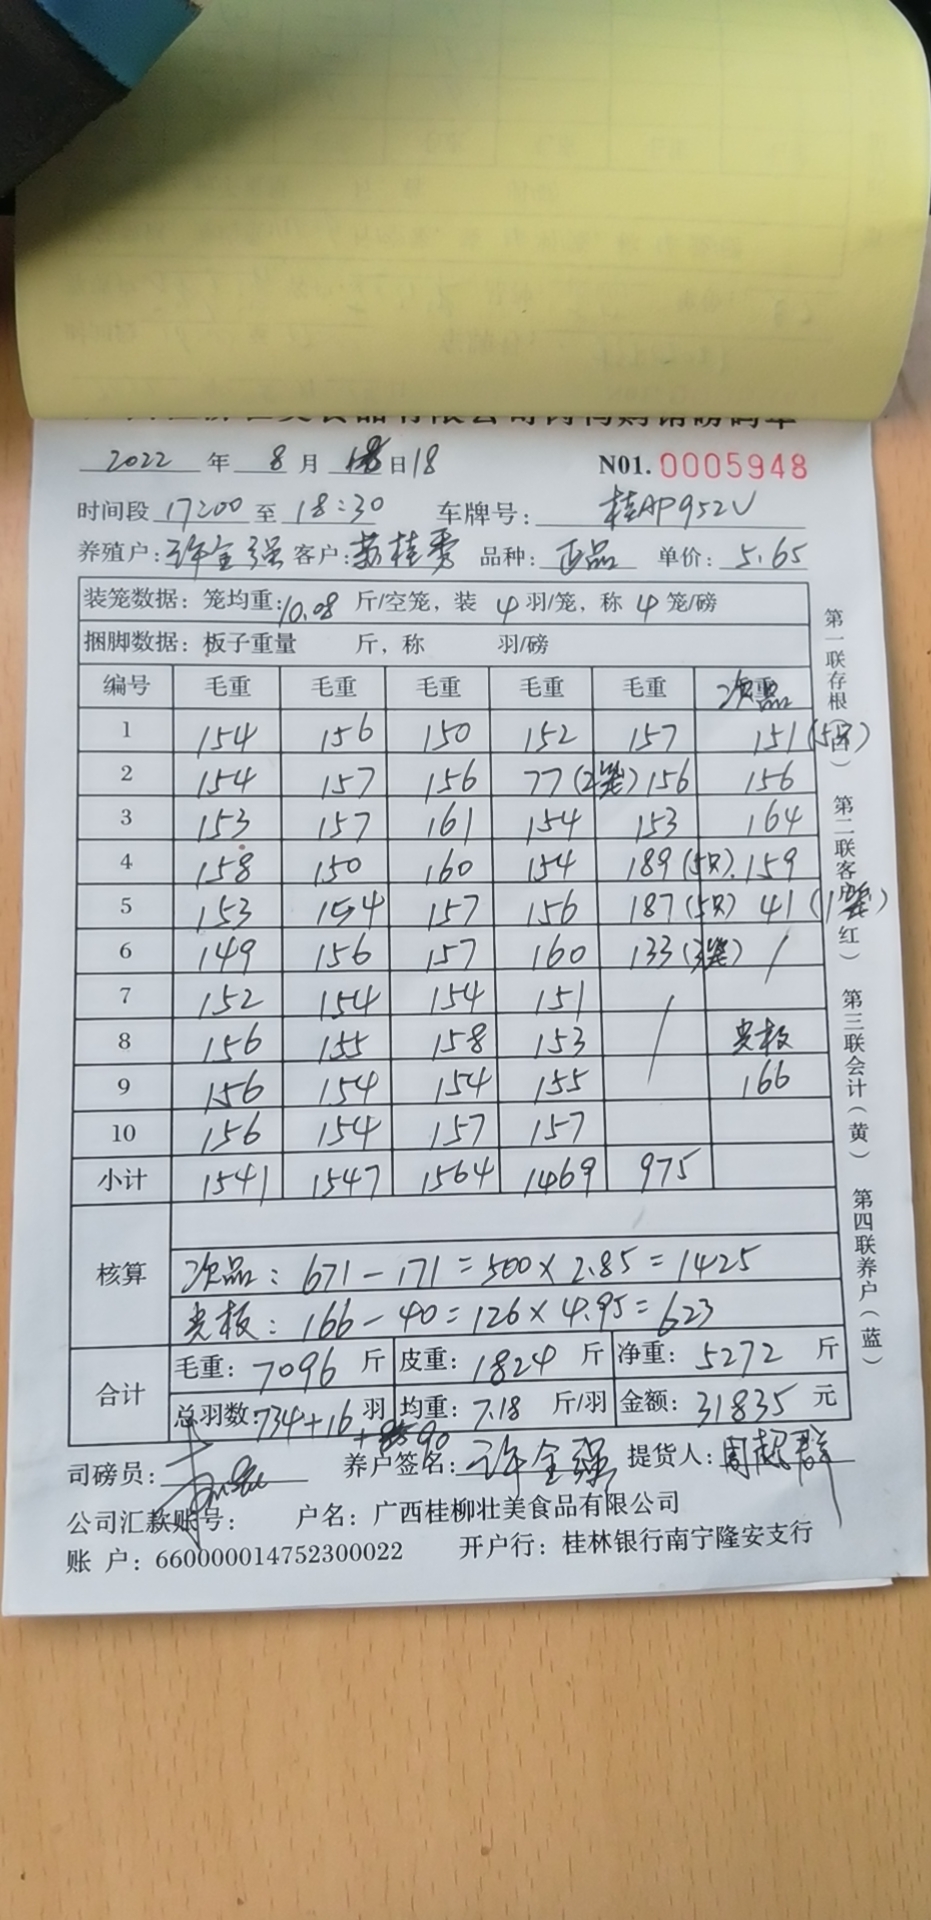 2022 年 8 月 18 日 18 N01. 0005948
时间段 17:00 至 18:30 车牌号: 桂AP952V
养殖户: 许全强 客户: 苏桂秀 品种: 正品 单价: 5.65
装笼数据: 笼均重: 10.08 斤/空笼, 装 4 羽/笼, 称 4 笼/磅
捆脚数据: 板子重量 斤, 称 羽/磅
编号 毛重 毛重 毛重 毛重 毛重 次品
1 154 156 150 152 157 151 (5只)
2 154 157 156 77 (2笼) 156 156
3 153 157 161 154 153 164
4 158 150 160 154 189 (5只) 159
5 153 154 157 156 187 (5只) 41 (1笼)
6 149 156 157 160 133 (3笼) /
7 152 154 154 151 /
8 156 155 158 153 光板
9 156 154 154 155 166
10 156 154 157 157
小计 1541 1547 1564 1469 975
核算
次品: 671-171=500×2.85=1425
光板: 166-40=126×4.95=623
合计
毛重: 7096 斤 皮重: 1824 斤 净重: 5272 斤
总羽数: 734+16 羽 均重: 7.18 斤/羽 金额: 31835 元
+ 90
司磅员: 养户签名: 许全强 提货人: 周超群
公司汇款账号: 户名: 广西桂柳壮美食品有限公司
账 户: 660000014752300022 开户行: 桂林银行南宁隆安支行
第一联存根
第二联客户(红)
第三联会计(黄)
第四联养户(蓝)